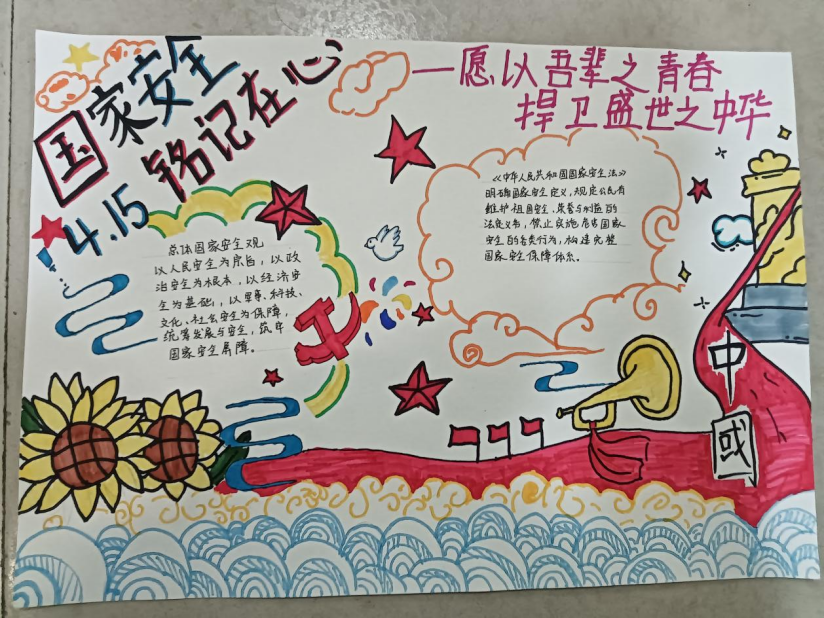 国家安全
铭记在心
4.15
一愿以吾辈之青春
捍卫盛世之中华
总体国家安全观
以人民安全为宗旨，以政
治安全为根本，以经济安
全为基础，以军事、科技、
文化、社会安全为保障，
统筹发展与安全，筑牢
国家安全屏障。
《中华人民共和国国家安全法》
明确国家安全定义，规定公民有
维护祖国安全、荣誉与利益的
法定义务，禁止实施危害国家
安全的各类行为，构建完整
国家安全保障体系。
中
國